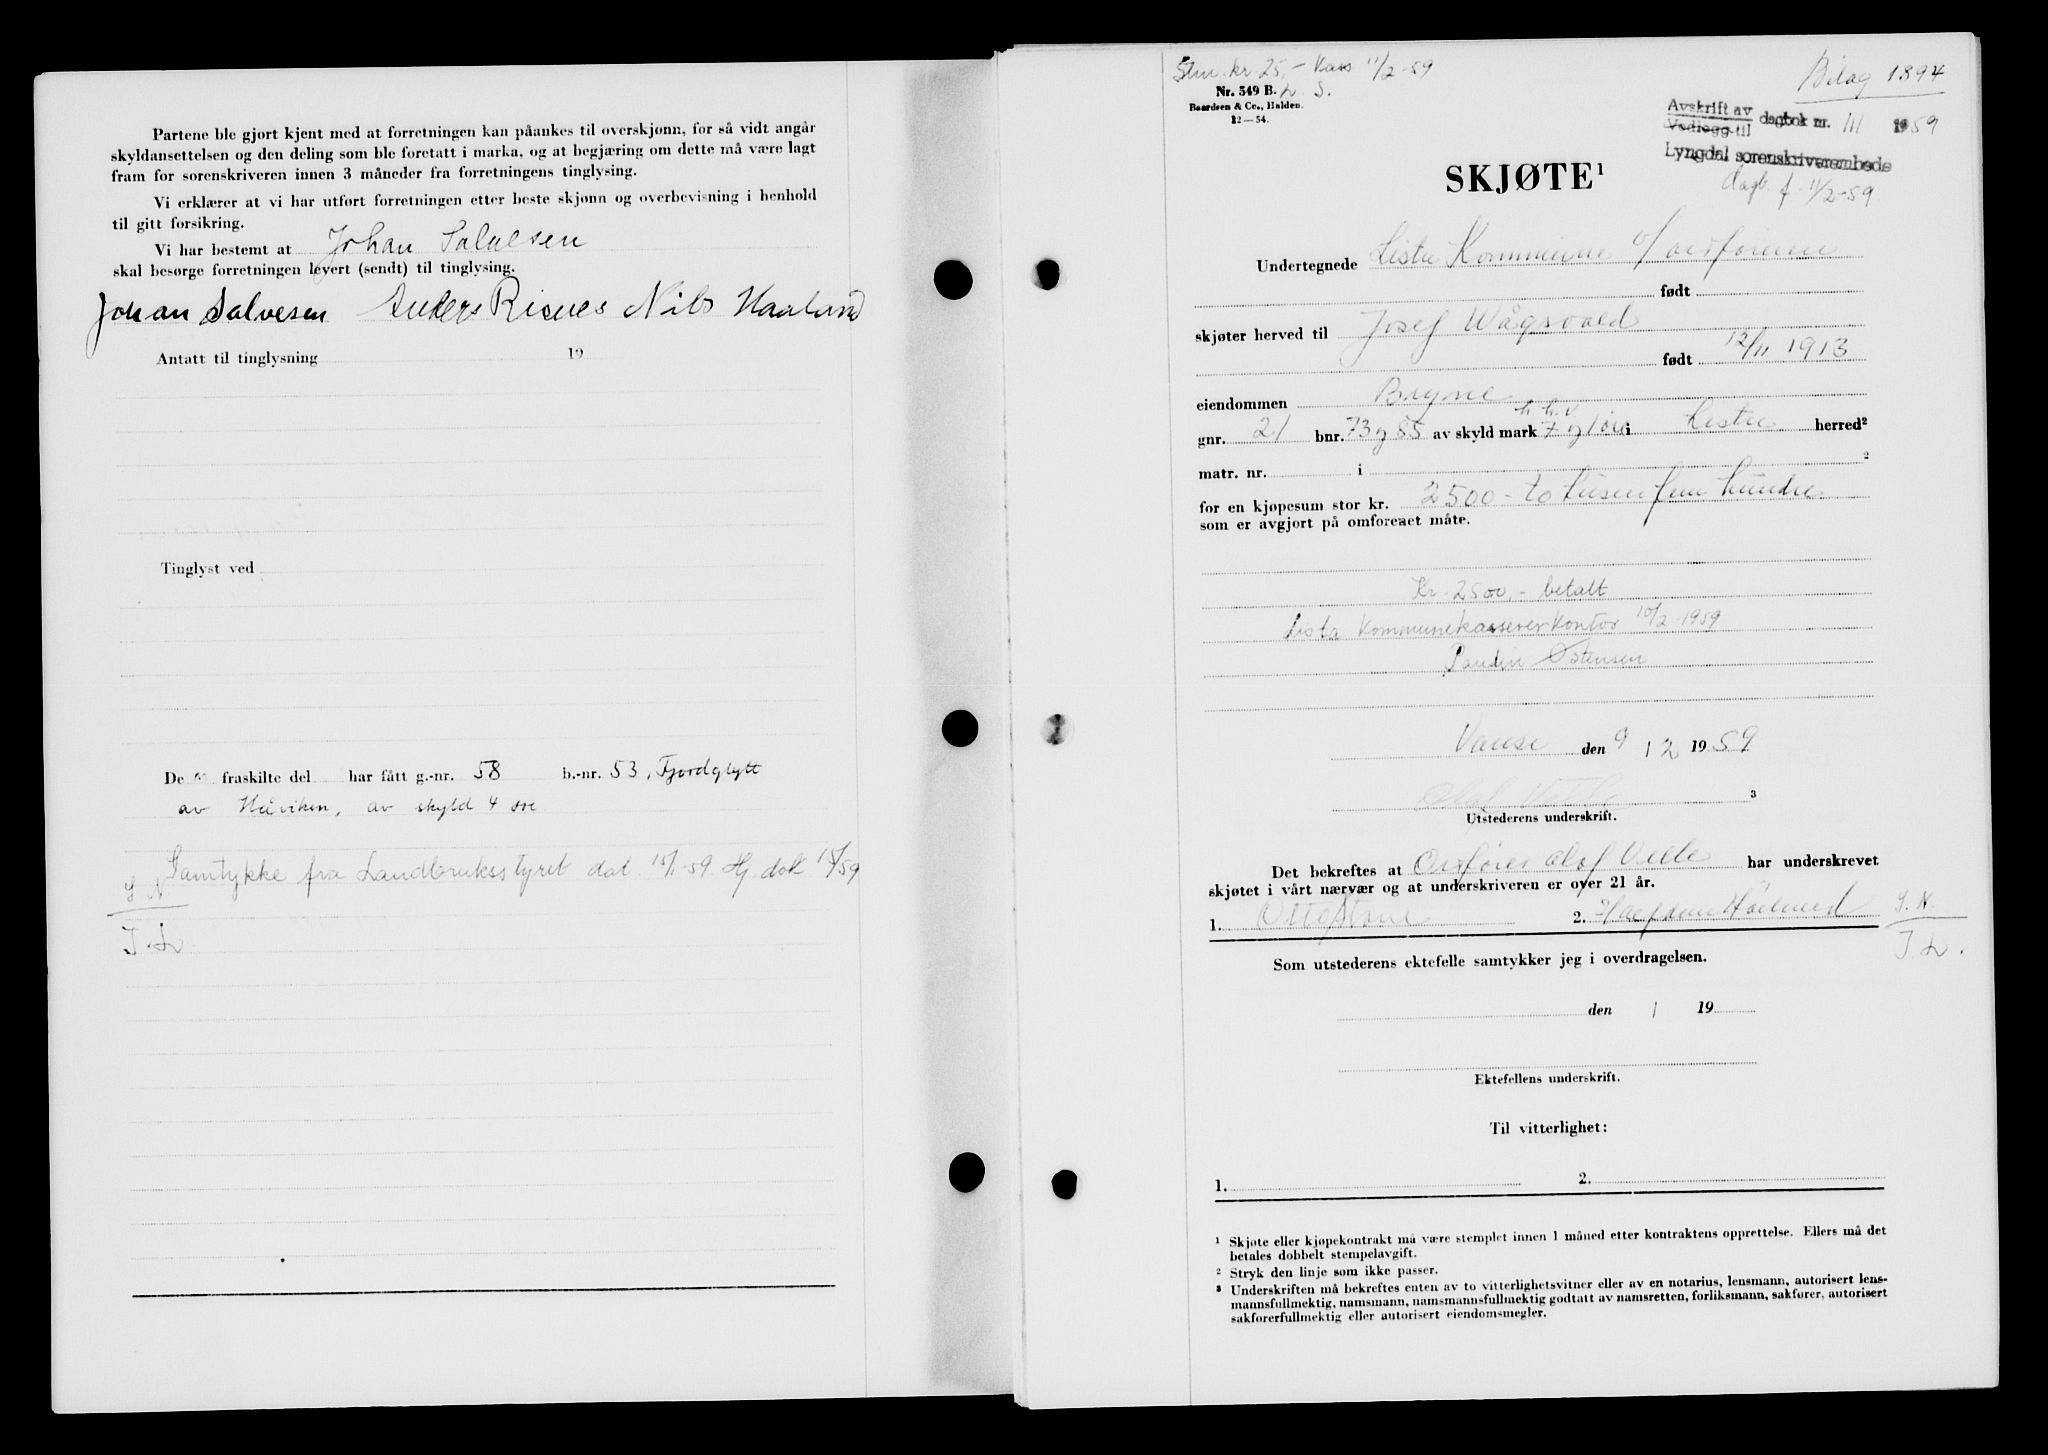 Partene ble gjort kjent med at forretningen kan påankes til overskjønn, for så vidt angår
skyldansettelsen og den deling som ble foretatt i marka, og at begjæring om dette må være lagt
fram for sorenskriveren innen 3 måneder fra forretningens tinglysing.
Vi erklærer at vi har utført forretningen etter beste skjønn og overbevisning i henhold
til gitt forsikring.
Vi har bestemt at Johan Salvesen
skal besørge forretningen levert (sendt) til tinglysing.
Johan Salvesen Anders Risnes Nils Haaland
Antatt til tinglysning 19
Tinglyst ved
De fraskilte del har fått g.-nr. 58 b.-nr. 53, Fjordglytt
av Huviken, av skyld 4 øre
Samtykke fra Landbruksstyret dat. 15/1-59. Hj. dok 15/59
S N
J. L.
Stm. kr 25,- Kass 11/2-59
Nr. 549 B. L. S.
Baardsen & Co., Halden.
12—54.
Bilag 1894
Avskrift av
Vedlegg til dagbok nr. 111 1959
Lyngdal sorenskriverembede
dagb. f. 11/2-59
SKJØTE¹
Undertegnede Lista Kommune v/ordføreren
født
skjøter herved til Josef Wågsvold
født 12/11 1913
eiendommen Bryne
h. h. v.
gnr. 21 bnr. 73 og 85 av skyld mark 7 og 1 øre i Lista herred²
matr. nr. i ²
for en kjøpesum stor kr. 2500 - to tusen fem hundre
som er avgjort på omforenet måte.
Kr. 2500,- betalt
Lista Kommunekassererkontor 10/2-1959
Østensen
Vanse den 9 / 2 1959
³
Utstederens underskrift.
Det bekreftes at Ordfører Olaf har underskrevet
skjøtet i vårt nærvær og at underskriveren er over 21 år.
1. 2.
S. N.
J. L.
Som utstederens ektefelle samtykker jeg i overdragelsen.
den / 19
Ektefellens underskrift.
Til vitterlighet:
1. 2.
¹ Skjøte eller kjøpekontrakt må være stemplet innen 1 måned etter kontraktens opprettelse. Ellers må det
betales dobbelt stempelavgift.
² Stryk den linje som ikke passer.
³ Underskriften må bekreftes enten av to vitterlighetsvitner eller av en notarius, lensmann, autorisert lens-
mannsfullmektig, namsmann, namsmannsfullmektig godtatt av namsretten, forliksmann, sakfører, autorisert
sakførerfullmektig eller autorisert eiendomsmegler.